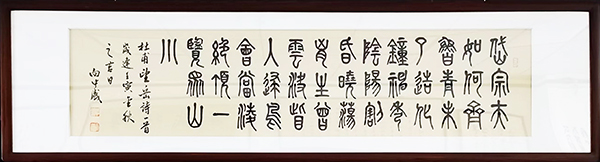 岱宗夫
如何齊
魯青未
了造化
鐘神秀
陰陽割
昏曉蕩
胸生曾
雲決眥
入歸鳥
會當凌
絕頂一
覽眾山
小
杜甫望岳诗一首
歲逢壬寅金秋
之吉日